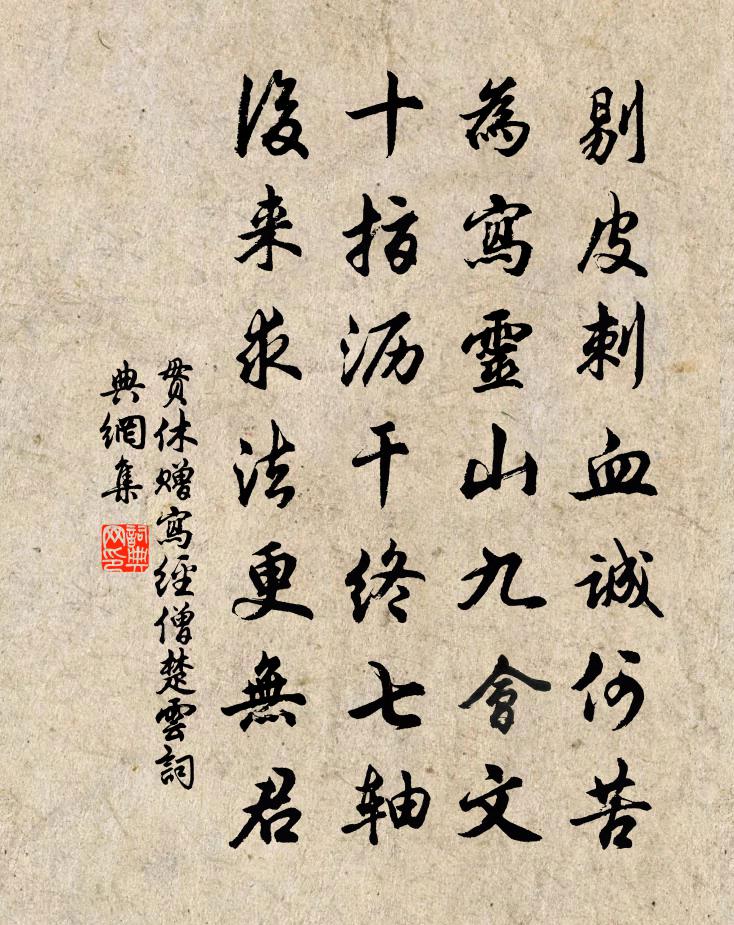 剔皮刺血誠何苦
為寫靈山九會文
十指瀝干終七軸
後来求法更無君
贯休赠寫經僧楚雲詞
典網集
詞典网印